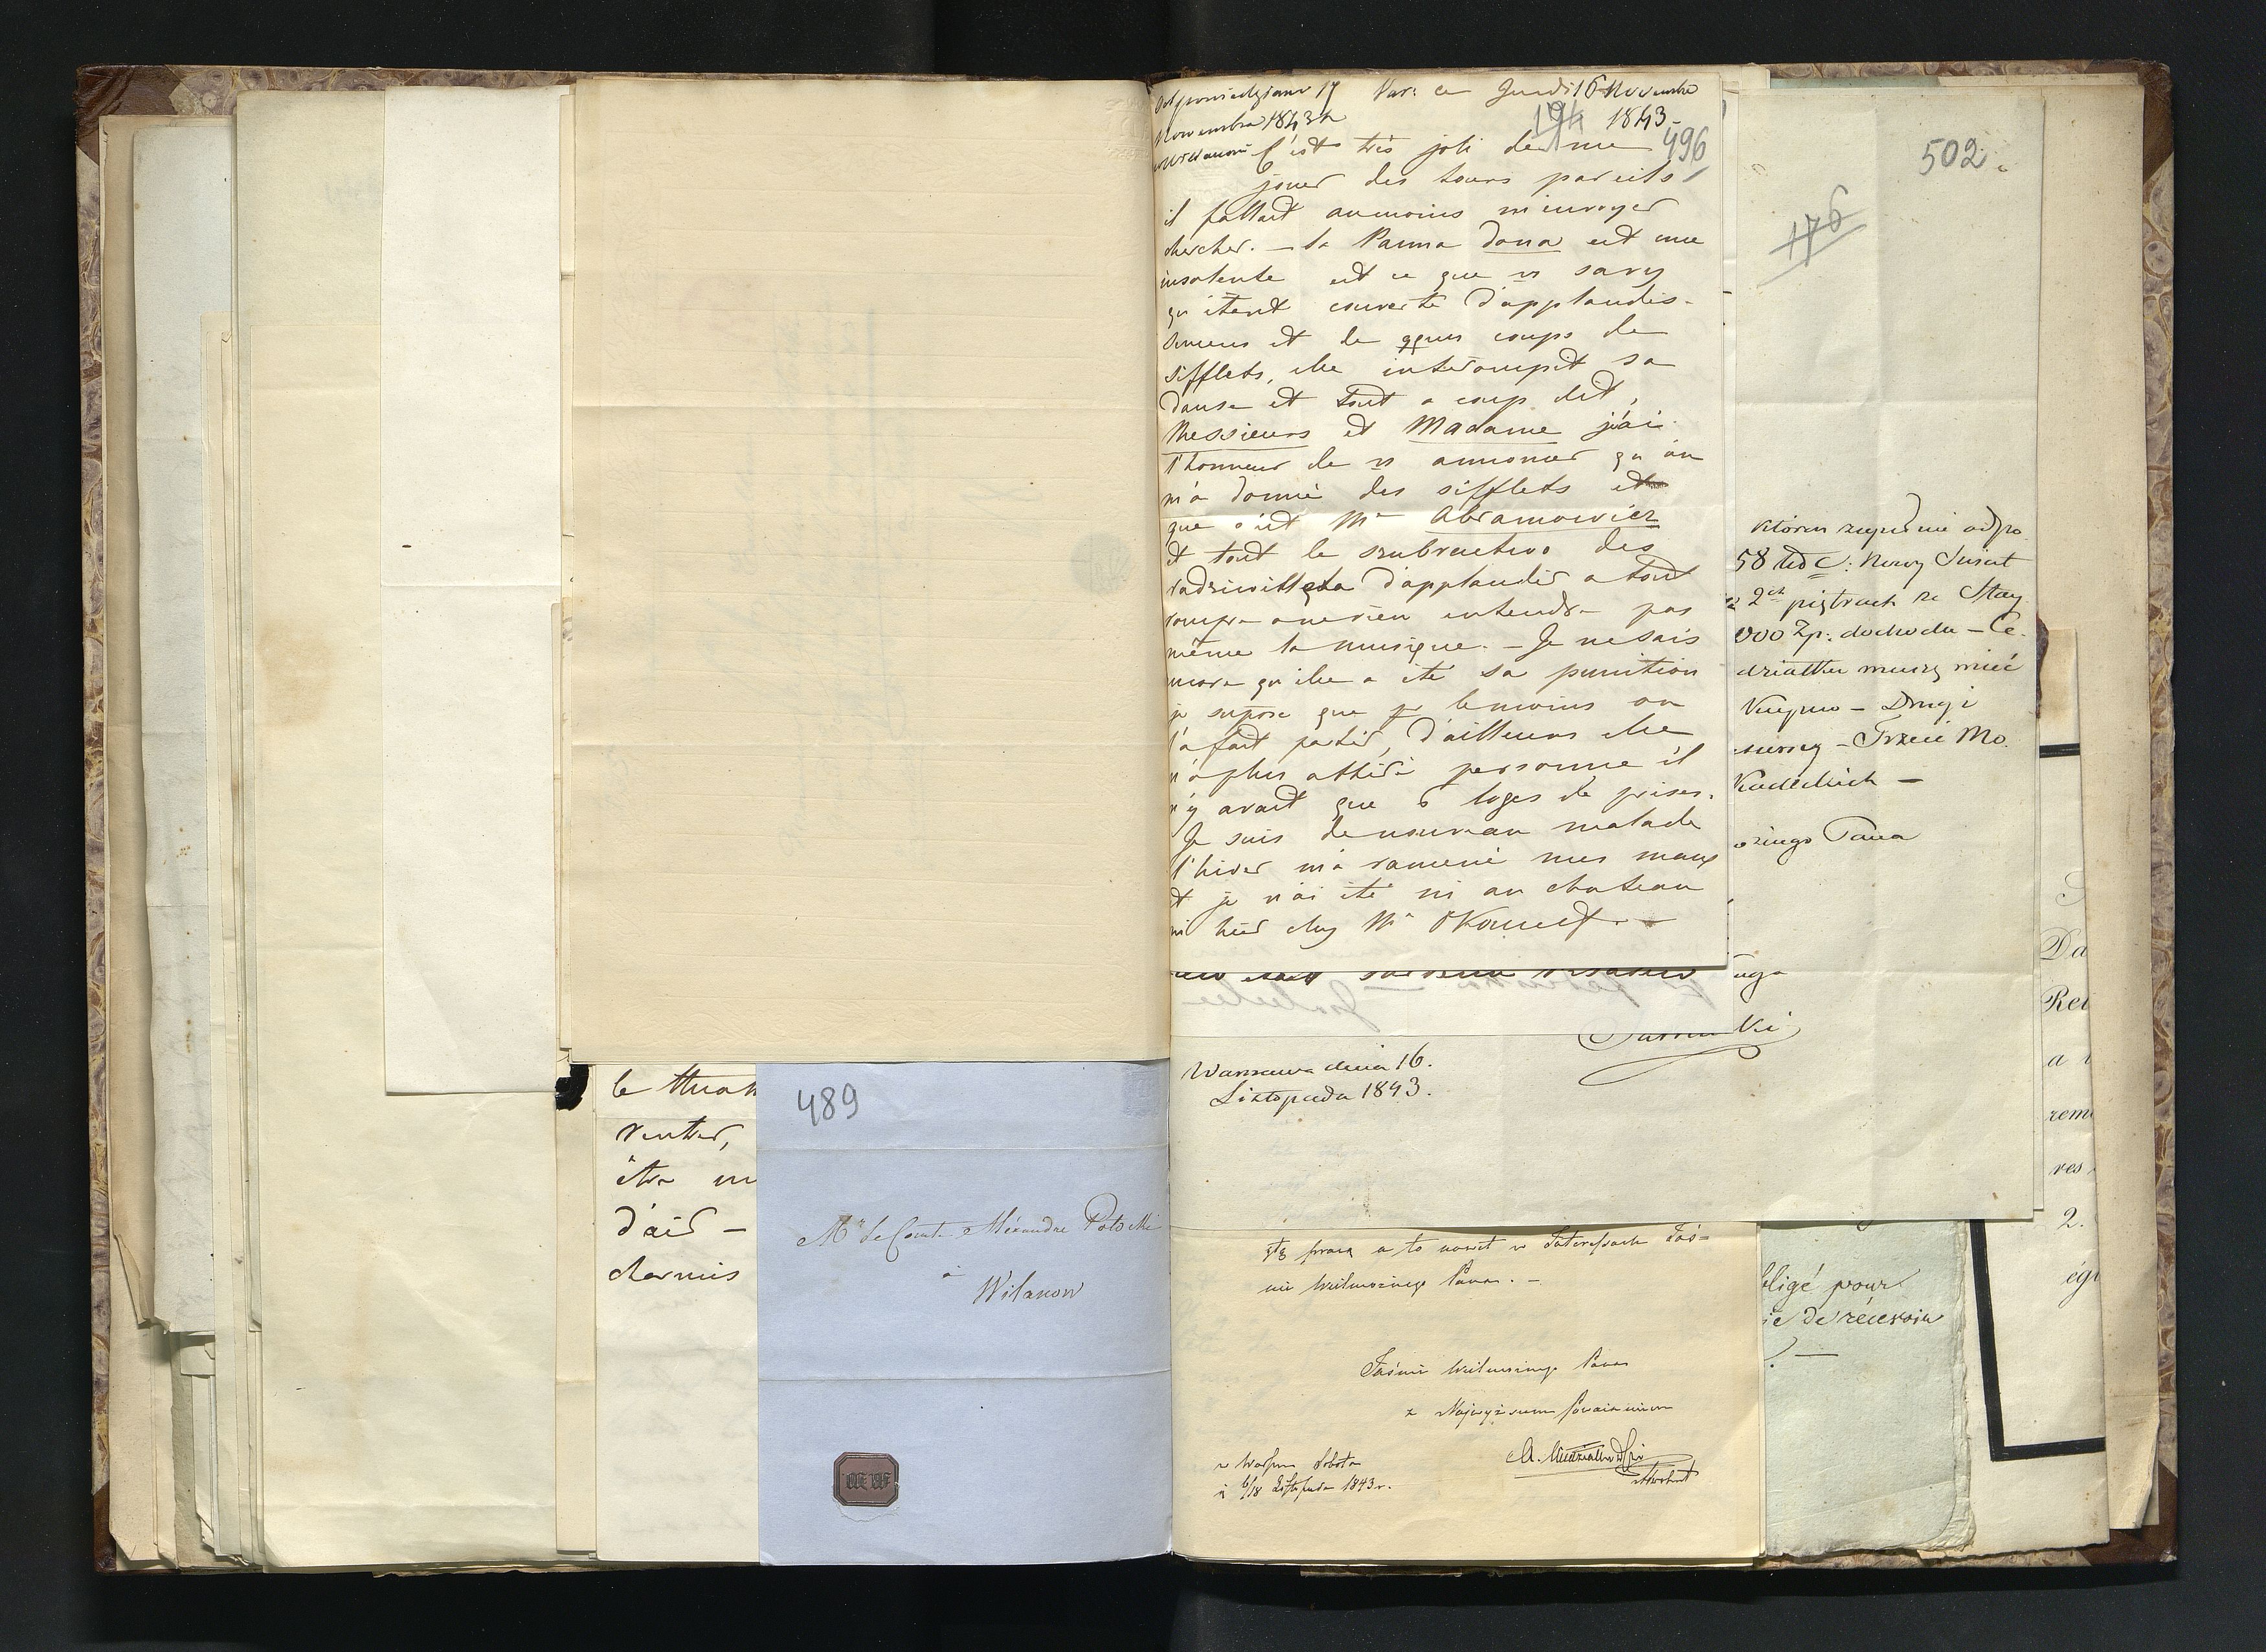 le
rentrer,
être
d'air —
charmés
489
Mr le Comte Alexandre Potocki
à
Wilanow
Odpowiedziano 17
Novembra 1843 r.
Vars: ce Jeudi 16 Novembre
194 1843 -
496
C'est très joli de me
jouer des tours pareils
il fallait aumoins m'envoyer
chercher. — la Panna dona est une
insolente est ce que vs savez
qu'étant couverte d'applaudis-
semens et de qques coups de
sifflets, elle interrompit sa
danse et tout a coup dit,
Messieurs et Madame j'ai
l'honneur de vs annoncer qu'on
m'a donné des sifflets et
que c'est Mr Abramowicz
et tout le des
d'applaudir a tout
rompre a ne rien entendre pas
même la musique. — Je ne sais
encore qu'elle a été sa punition
je supose que le moins on
l'a fait partir, d'ailleurs elle
n'a plus attiré personne il
n'y avait que 6 loges de prises.
Je suis de nouveau malade
l'hiver m'a ramené mes maux
et je n'ai été ni au chateau
ni hier chez Mr
Warszawa dnia 16.
Listopada 1843.
pracą a to nawet w Interessach Jaś=
nie Wielmożnego Pana. —
Jaśnie Wielmożnego Pana
z Najwyższem Poważaniem
w Warszaw Sobota
d 6/18 Listopada 1843 r.
502
176
którem zupełnie odpo
58 lit C: Nowy Świat
2ch piętrach ze Stay
000 Zp: dochodu — Ce.
działku muszę mieć
Kupno — Drugi
Trzeci Mo.
ożnego Pana
bligé pour
de recevoir
Da
Rei
a
rem
res
2.
ég